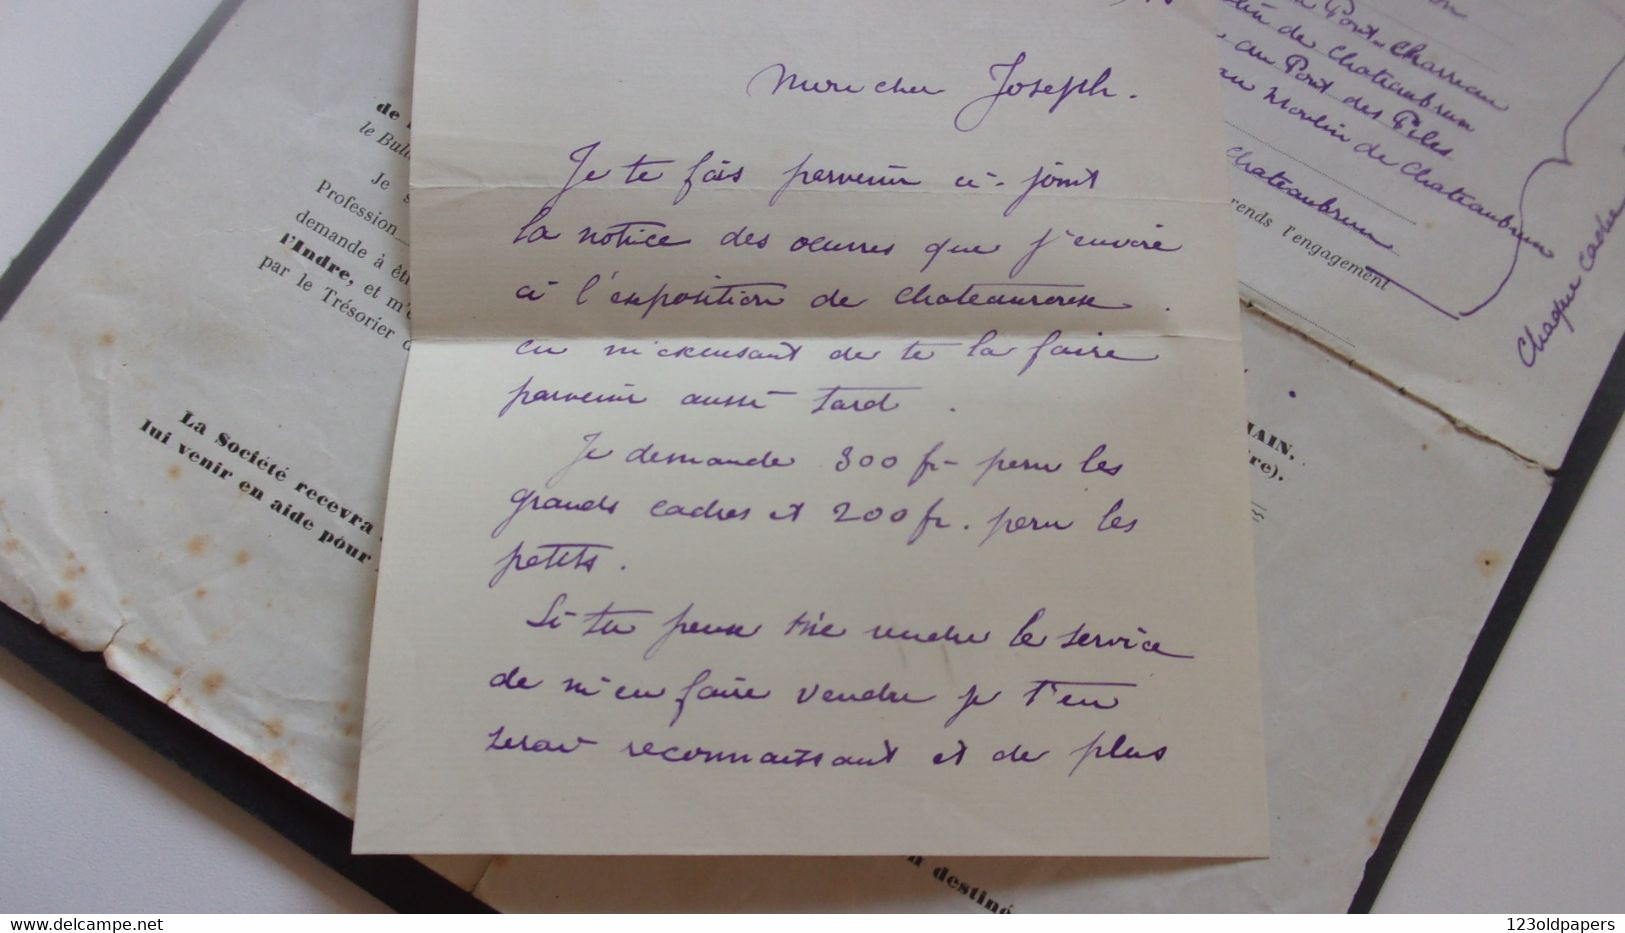 Mon cher Joseph.
Je te fais parvenir ci-joint
la notice des oeuvres que j'envoie
à l'exposition de Chateauroux.
en m'excusant de te la faire
parvenir aussi tard.
Je demande 300 fr pour les
grands cadres et 200 fr. pour les
petits.
Si tu peux me rendre le service
de m'en faire vendre je t'en
serai reconnaissant et de plus
de
le Bull
Je
Profession
demande à êt
l'Indre, et m'e
par le Trésorier d
La Société recevra
lui venir en aide pour
Pont Charreau
de Chateaubrun
au Pont des Piles
au Moulin de Chateaubrun
Chateaubrun
rends l'engagement
Chaque cadre
MAIN.
re).
n destiné
delcampe.net
123oldpapers